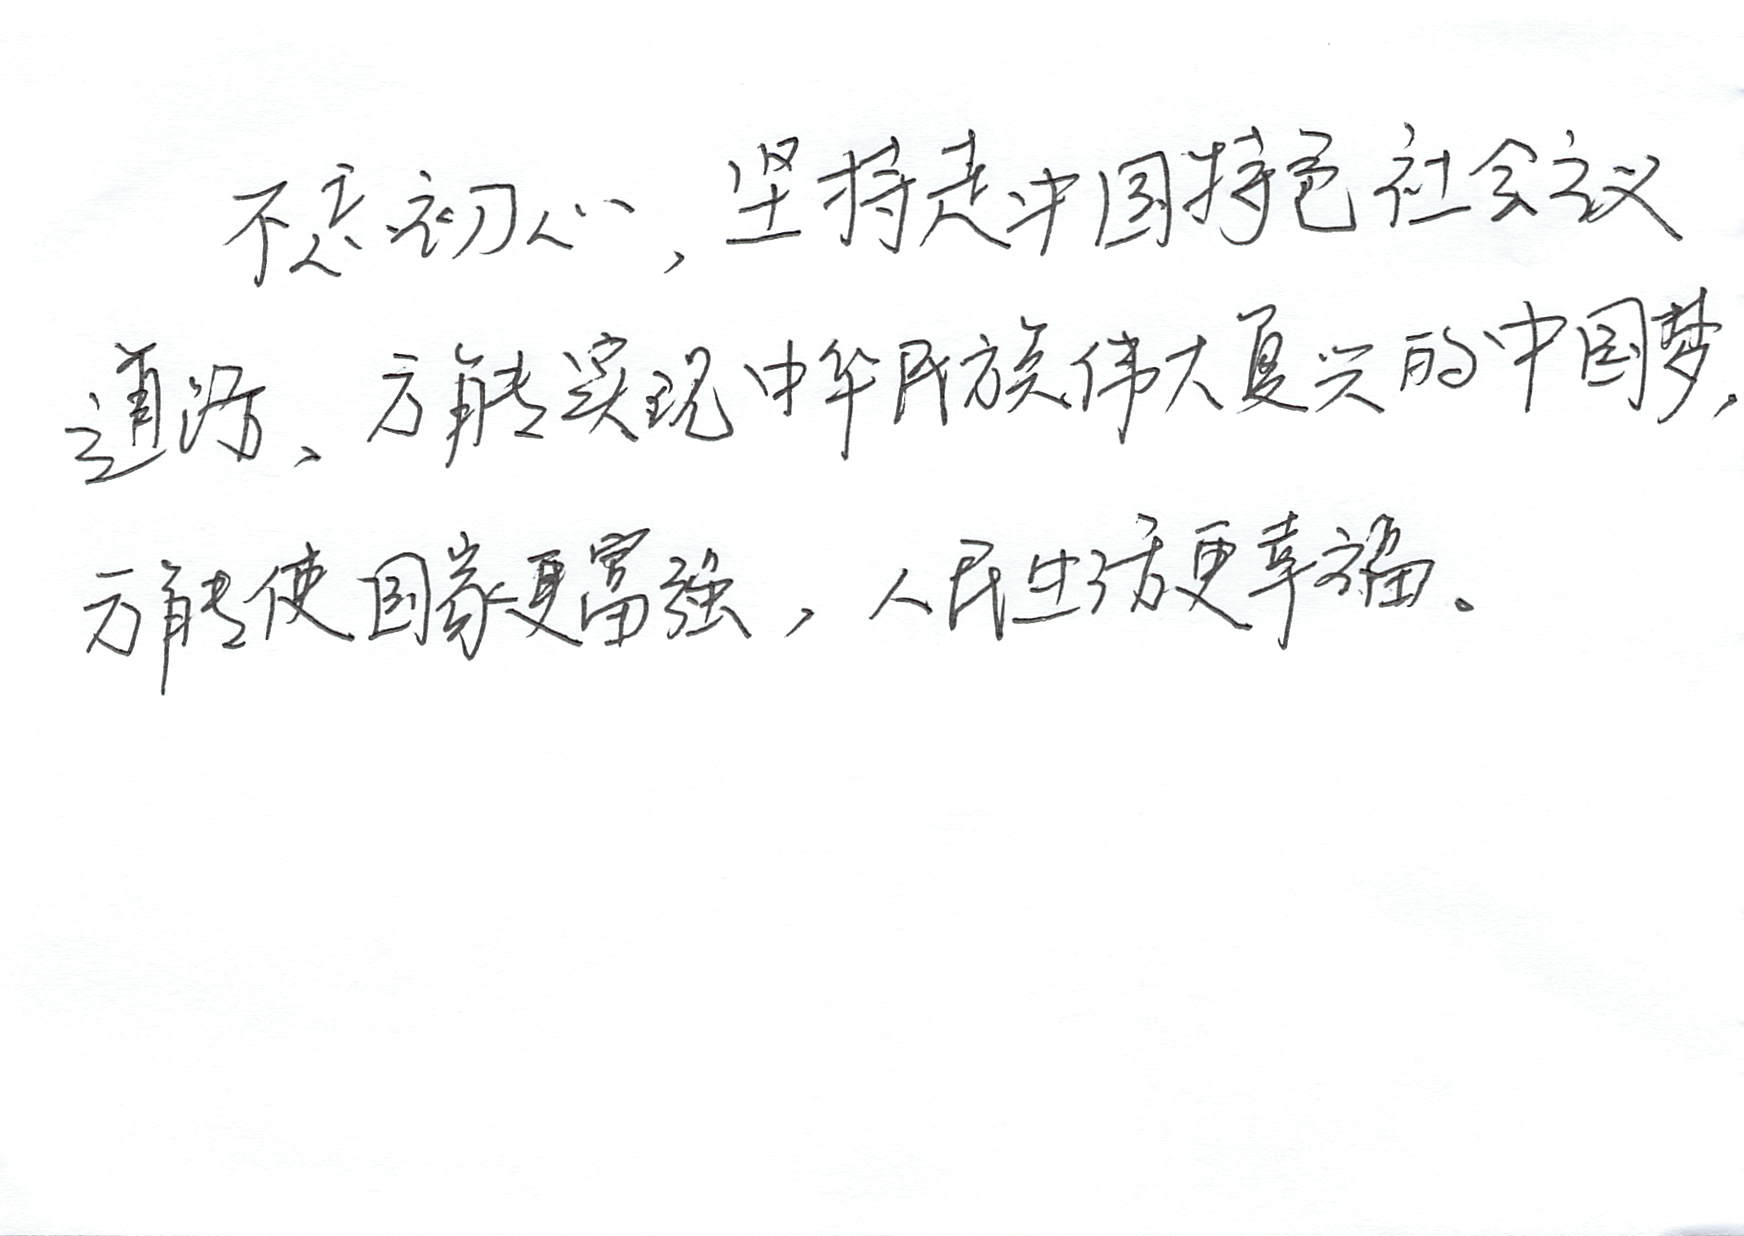 不忘初心，坚持走中国特色社会主义
道路、方能实现中华民族伟大复兴的中国梦，
方能使国家更富强，人民生活更幸福。